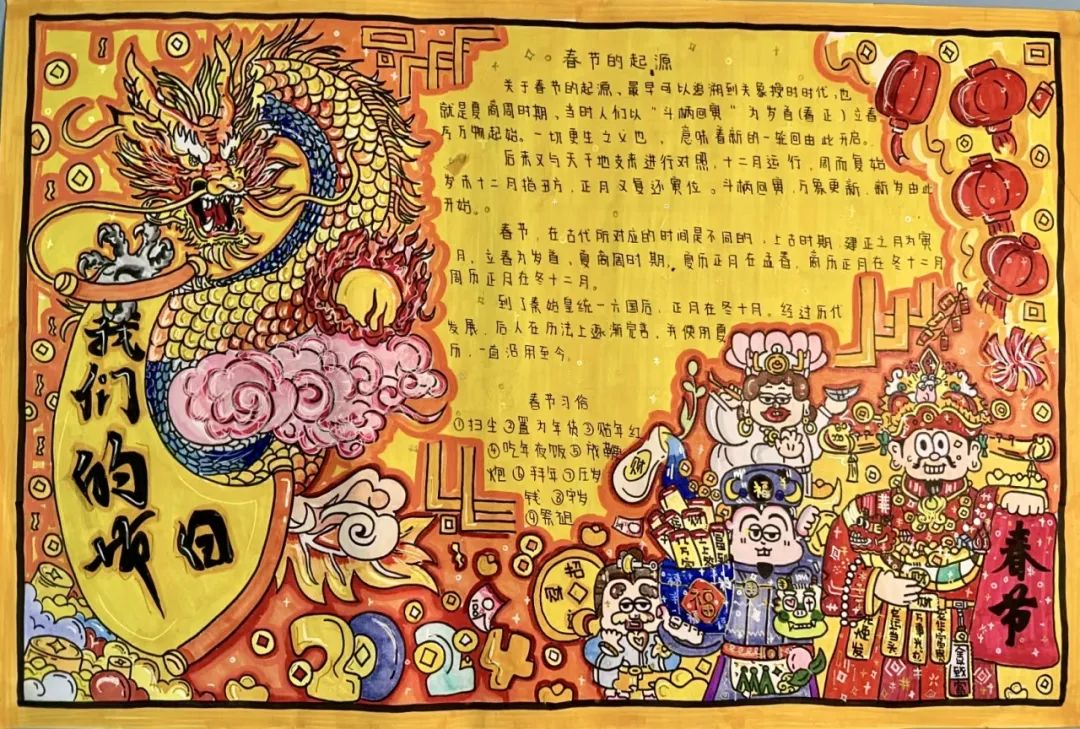 我们的节日
春节的起源
关于春节的起源、最早可以追溯到天象授时时代,也
就是夏商周时期、当时人们以“斗柄回寅”为岁首(春正)立春
乃万物起始。一切更生之义也,意味着新的一轮回由此开启。
后来又与天干地支来进行对照,十二月运行,周而复始
岁末十二月指丑方,正月又复还寅位。斗柄回寅,万象更新,新岁由此
开始。
春节,在古代所对应的时间是不同的,上古时期,建正之月为寅
月,立春为岁首,夏商周时期,夏历正月在孟春,商历正月在冬十二月
周历正月在冬十二月。
到了秦始皇统一六国后,正月在冬十月。经过历代
发展,后人在历法上逐渐完善,并使用夏
历,一直沿用至今。
春节习俗
①扫尘②置办年货③贴年红
④吃年夜饭⑤放鞭
炮⑥拜年⑦压岁
钱⑧守岁
⑨祭祖
财
福
福
招
财
春节
2024